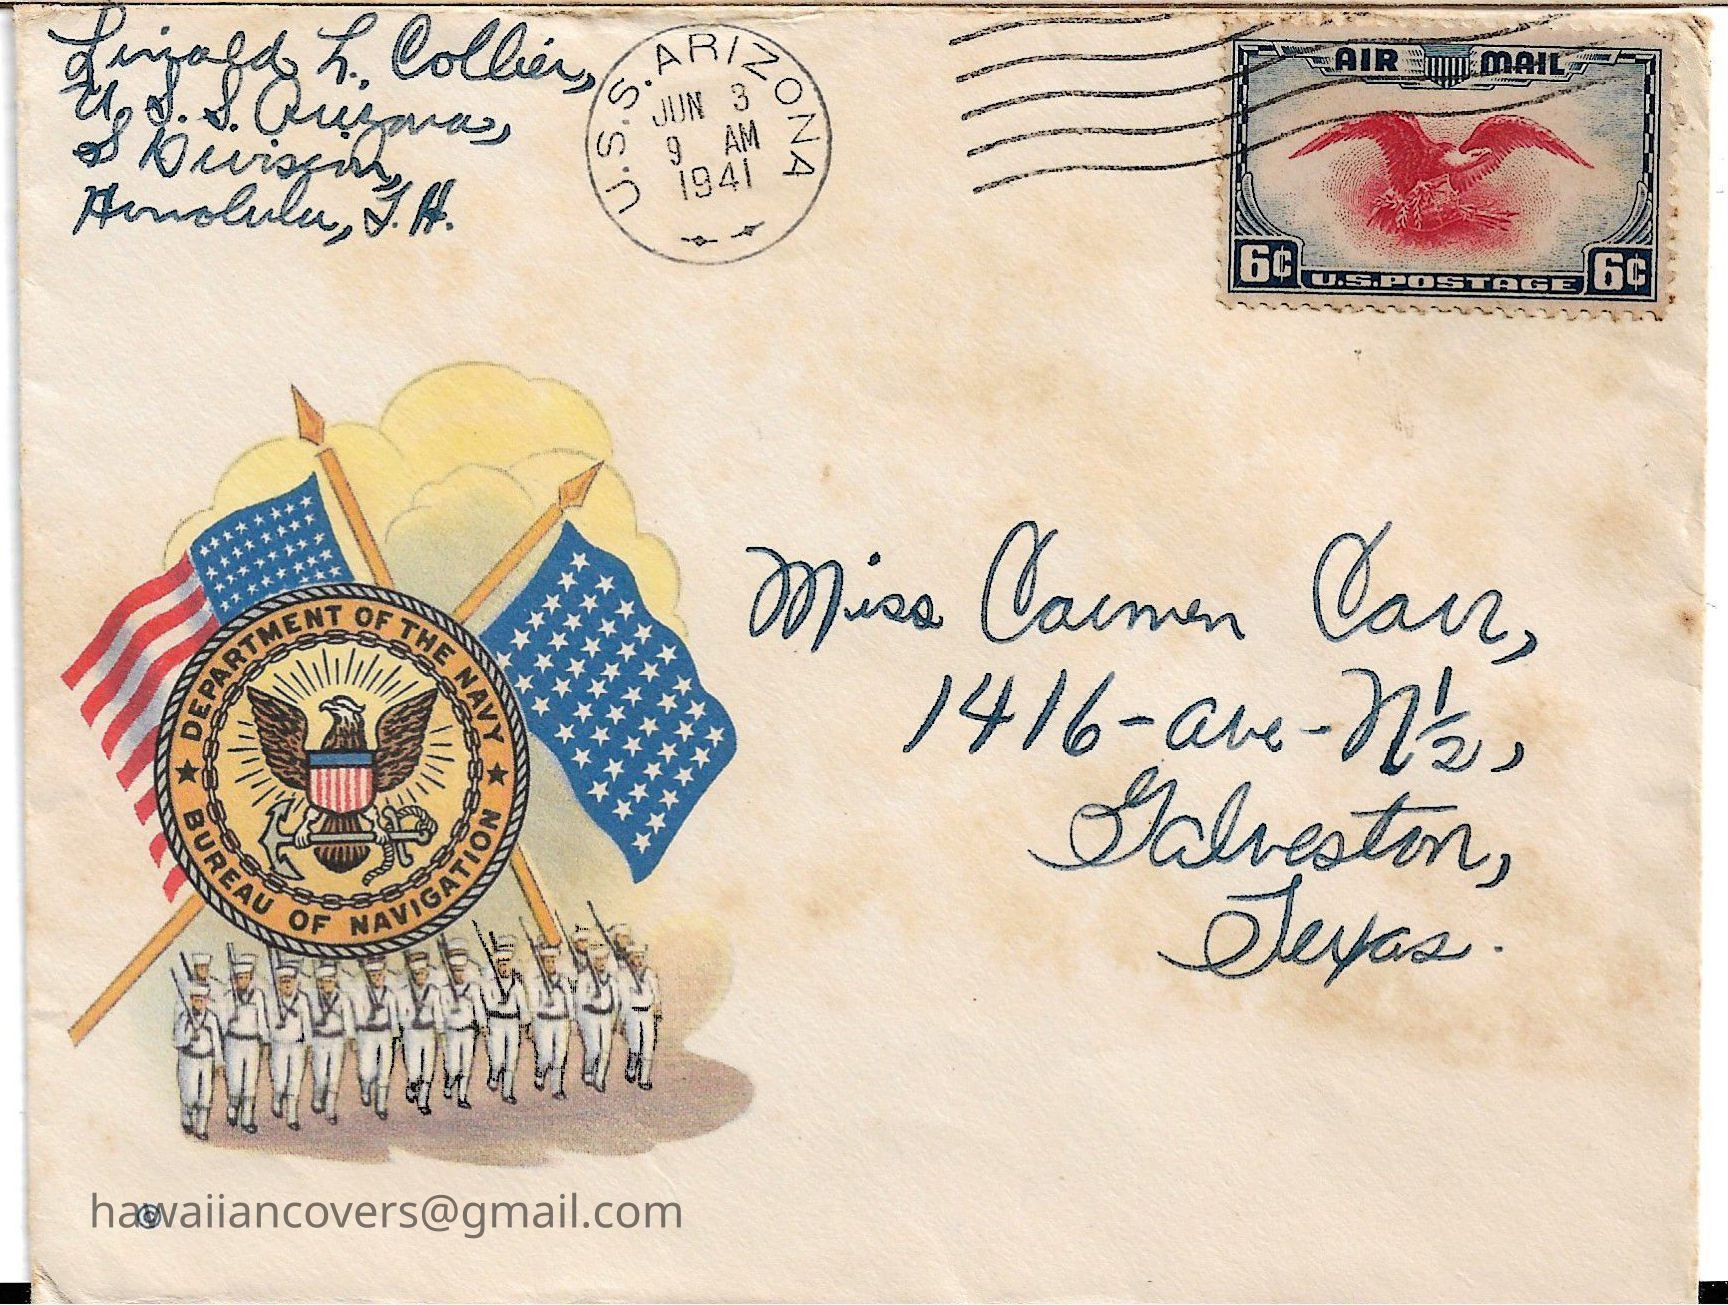 Linald L. Collier,
U.S.S. Arizona,
S Division,
Honolulu, T.H.
U.S.S. ARIZONA
JUN 3
9 AM
1941
AIR MAIL
6¢ U.S. POSTAGE 6¢
DEPARTMENT OF THE NAVY
BUREAU OF NAVIGATION
Miss Carmen Carr,
1416-ave-N½,
Galveston,
Texas.
hawaiiancovers@gmail.com
©